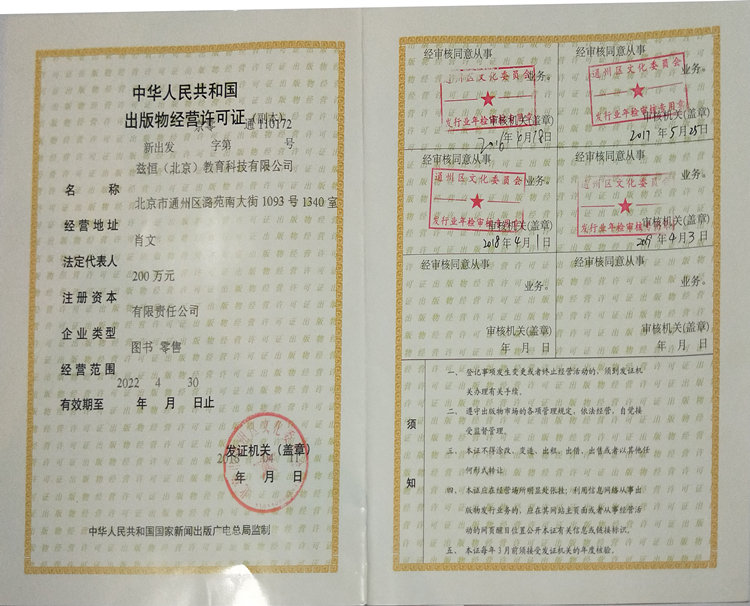 中华人民共和国
出版物经营许可证（副本）
新出发 京零 字第 通110172 号
名 称 兹恒（北京）教育科技有限公司
经营地址 北京市通州区潞苑南大街1093号1340室
法定代表人 肖文
注册资本 200万元
企业类型 有限责任公司
经营范围 图书 零售
有效期至 2022 年 4 月 30 日止
发证机关（盖章）
年 月 日
中华人民共和国国家新闻出版广电总局监制
经审核同意从事
业务。
通州区文化委员会
发行业年检审核专用章
审核机关(盖章)
2016年6月18日
经审核同意从事
业务。
通州区文化委员会
发行业年检审核专用章
审核机关(盖章)
2017年5月25日
经审核同意从事
业务。
通州区文化委员会
发行业年检审核专用章
审核机关(盖章)
2018年4月1日
经审核同意从事
业务。
通州区文化委员会
发行业年检审核专用章
审核机关(盖章)
2019年4月3日
经审核同意从事
业务。
审核机关(盖章)
年 月 日
经审核同意从事
业务。
审核机关(盖章)
年 月 日
须知
一、登记事项发生变更或者终止经营活动的，须到发证机
关办理有关手续。
二、遵守出版物市场的各项管理规定，依法经营，自觉接
受监督管理。
三、本证不得涂改、变造、出租、出借、出售或者以其他任
何形式转让
四、本证应在经营场所明显处张挂；利用信息网络从事出
版物发行业务的，应在其网站主页面或者从事经营活
动的网页醒目位置公开本证有关信息或链接标识。
五、本证每年3月前须接受发证机关的年度核验。